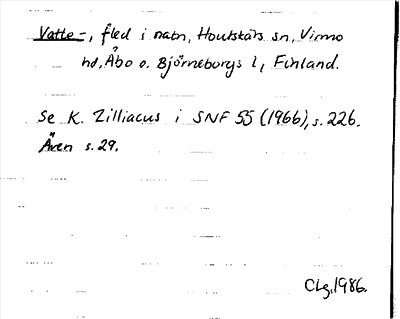 Vatte-, fled i natn, Houtskärs sn, Virmo
hd, Åbo o. Björneborgs l, Finland.
Se K. Zilliacus i SNF 55 (1966), s. 226.
Även s. 29.
CLg, 1986.